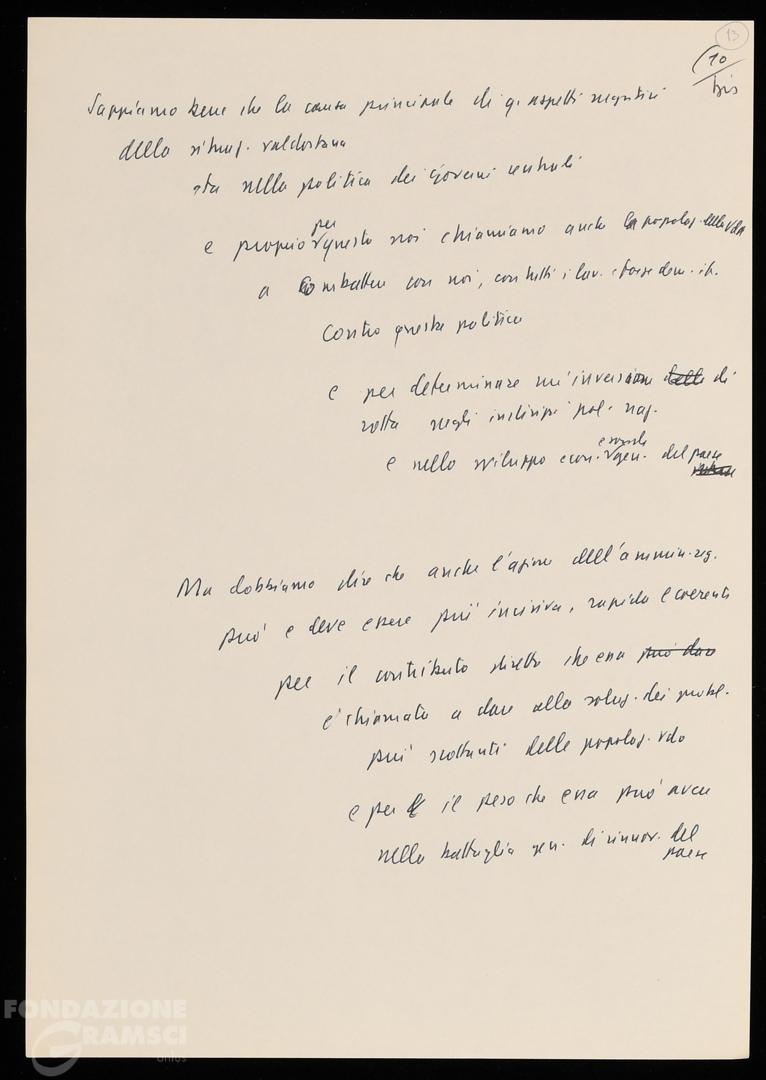 13
10
bis
Sappiamo bene che la causa principale di q. aspetti negativi
della situaz. valdostana
sta nella politica dei governi centrali
e proprio per questo noi chiamiamo anche la popolaz. della Vda
a combattere con noi, con tutti i lav. e forze dem. it.
contro questa politica
e per determinare un'inversione delle di
rotta negli indirizzi pol. naz.
e nello sviluppo econ. e sociale gen. del paese
Ma dobbiamo dire che anche l'azione dell'ammin. reg.
può e deve essere più incisiva, rapida e coerente
per il contributo diretto che essa può dare
è chiamata a dare alla soluz. dei probl.
più scottanti delle popolaz. vdo
e per il peso che essa può avere
nella battaglia gen. di rinnov. del
paese
FONDAZIONE
GRAMSCI
onlus